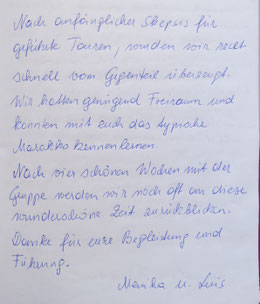 Nach anfänglicher Skepsis für
geführte Touren, wurden wir recht
schnell vom Gegenteil überzeugt.
Wir hatten genügend Freiraum und
konnten mit euch das typische
Marokko kennenlernen.
Nach vier schönen Wochen mit der
Gruppe werden wir noch oft an diese
wunderschöne Zeit zurückblicken.
Danke für eure Begleitung und
Führung.
Monika u. Luis